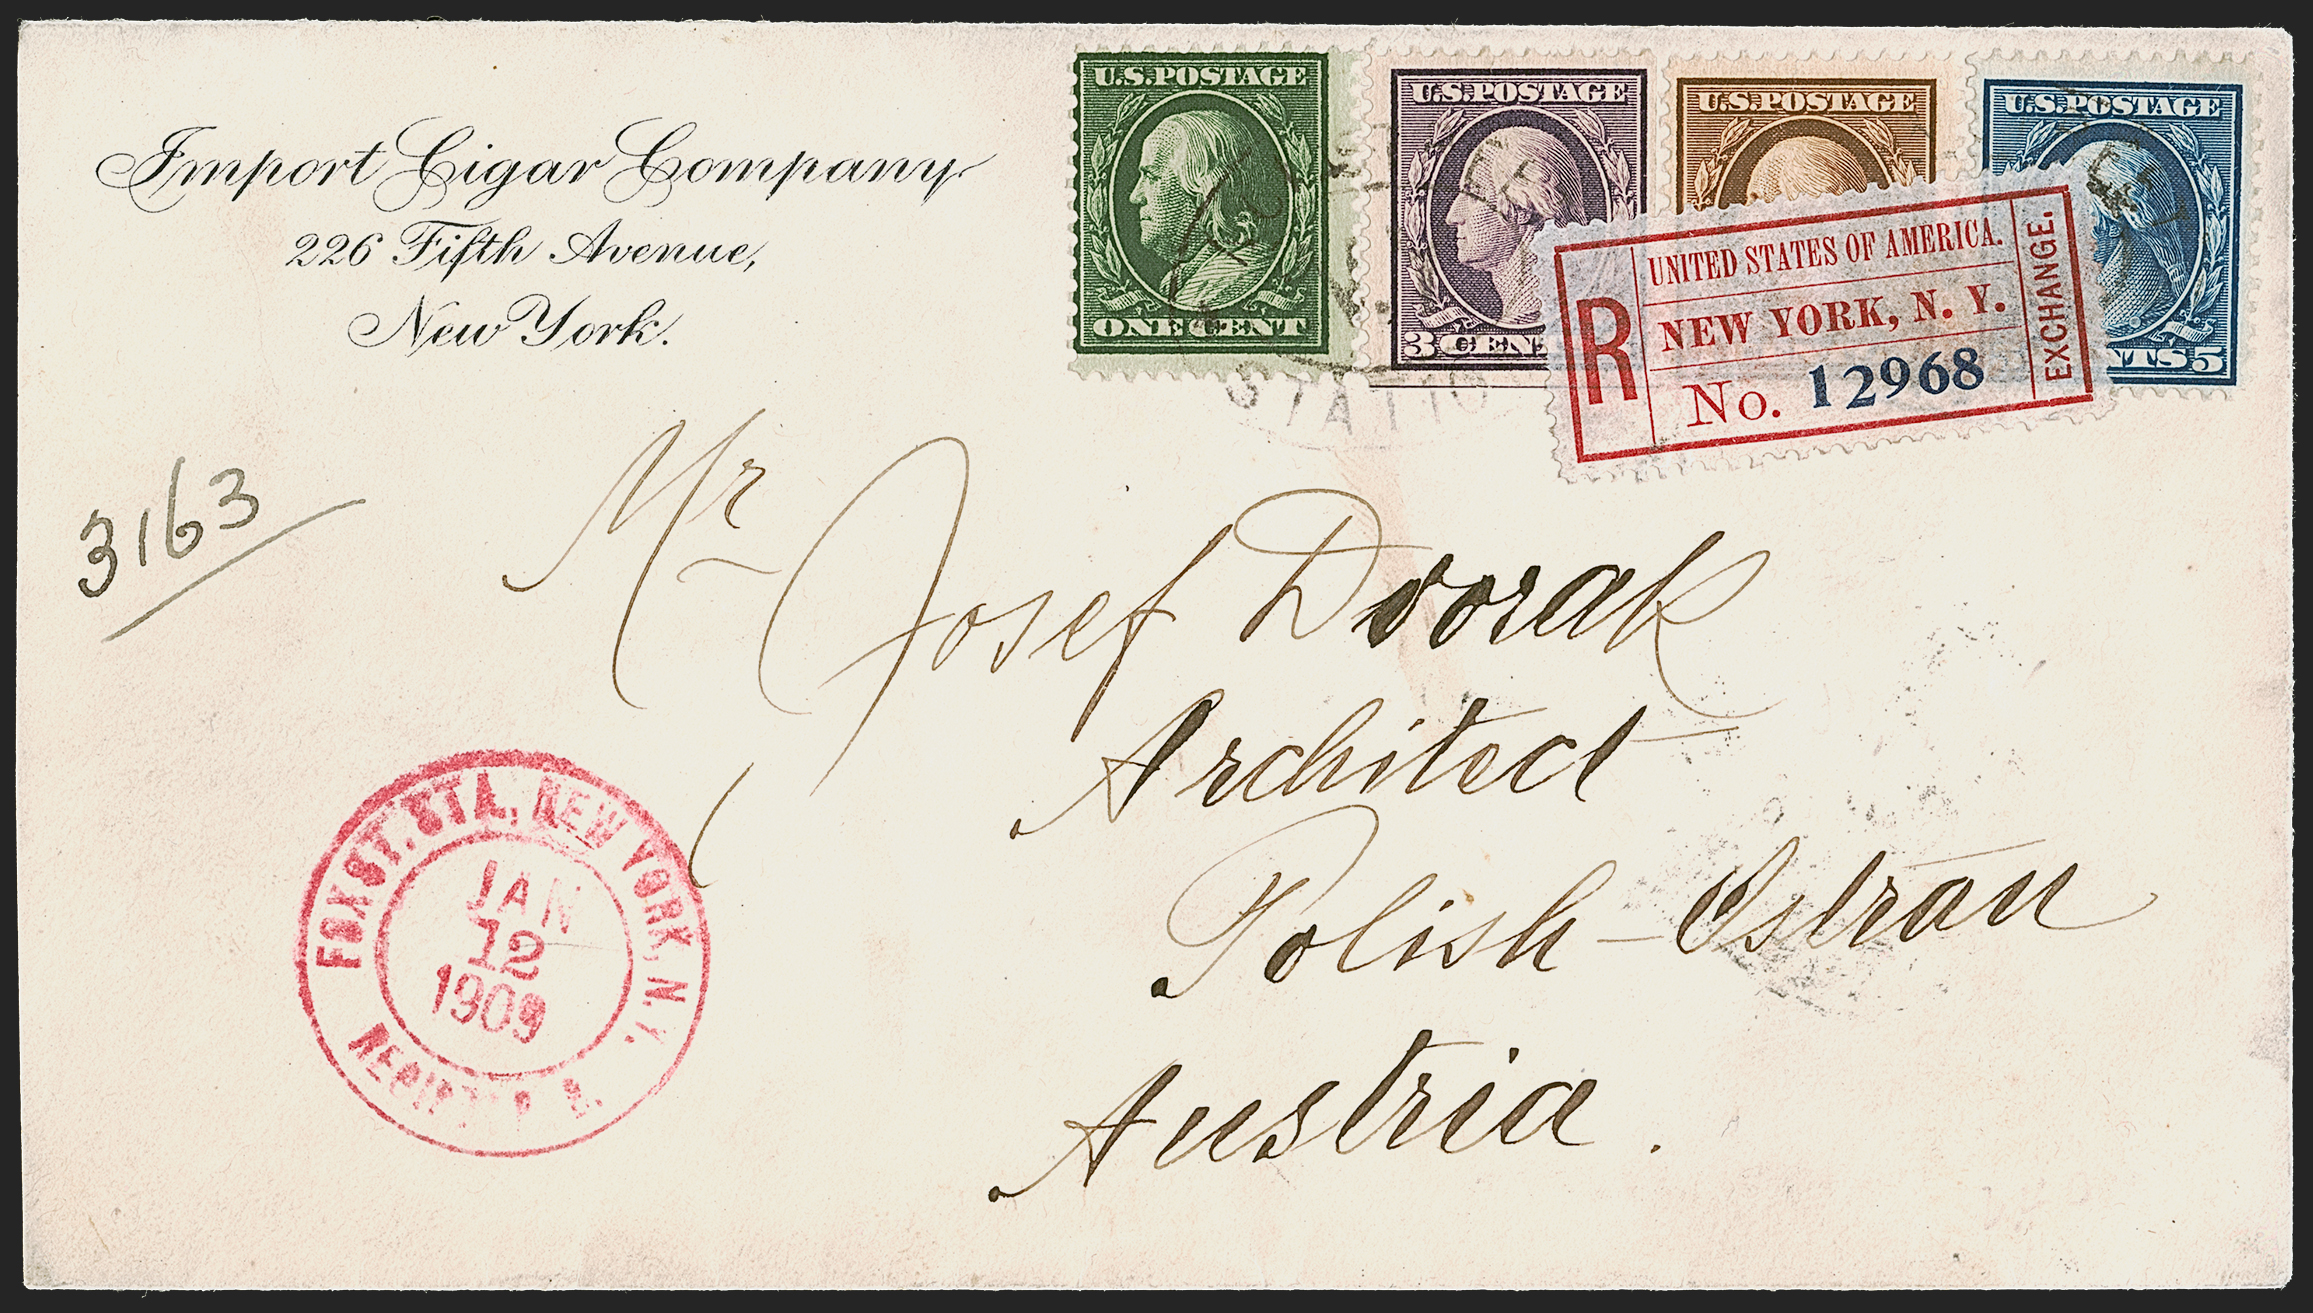 Import Cigar Company
226 Fifth Avenue,
New York.
U.S. POSTAGE
ONE CENT
U.S. POSTAGE
3 CEN
U.S. POSTAGE
U.S. POSTAGE
NTS 5
R
UNITED STATES OF AMERICA.
NEW YORK, N. Y.
No. 12968
EXCHANGE.
STATIO
3163
Mr Josef Dvorak
Architect
Polish-Ostrau
Austria.
FOX ST. STA. NEW YORK, N.Y.
JAN
12
1909